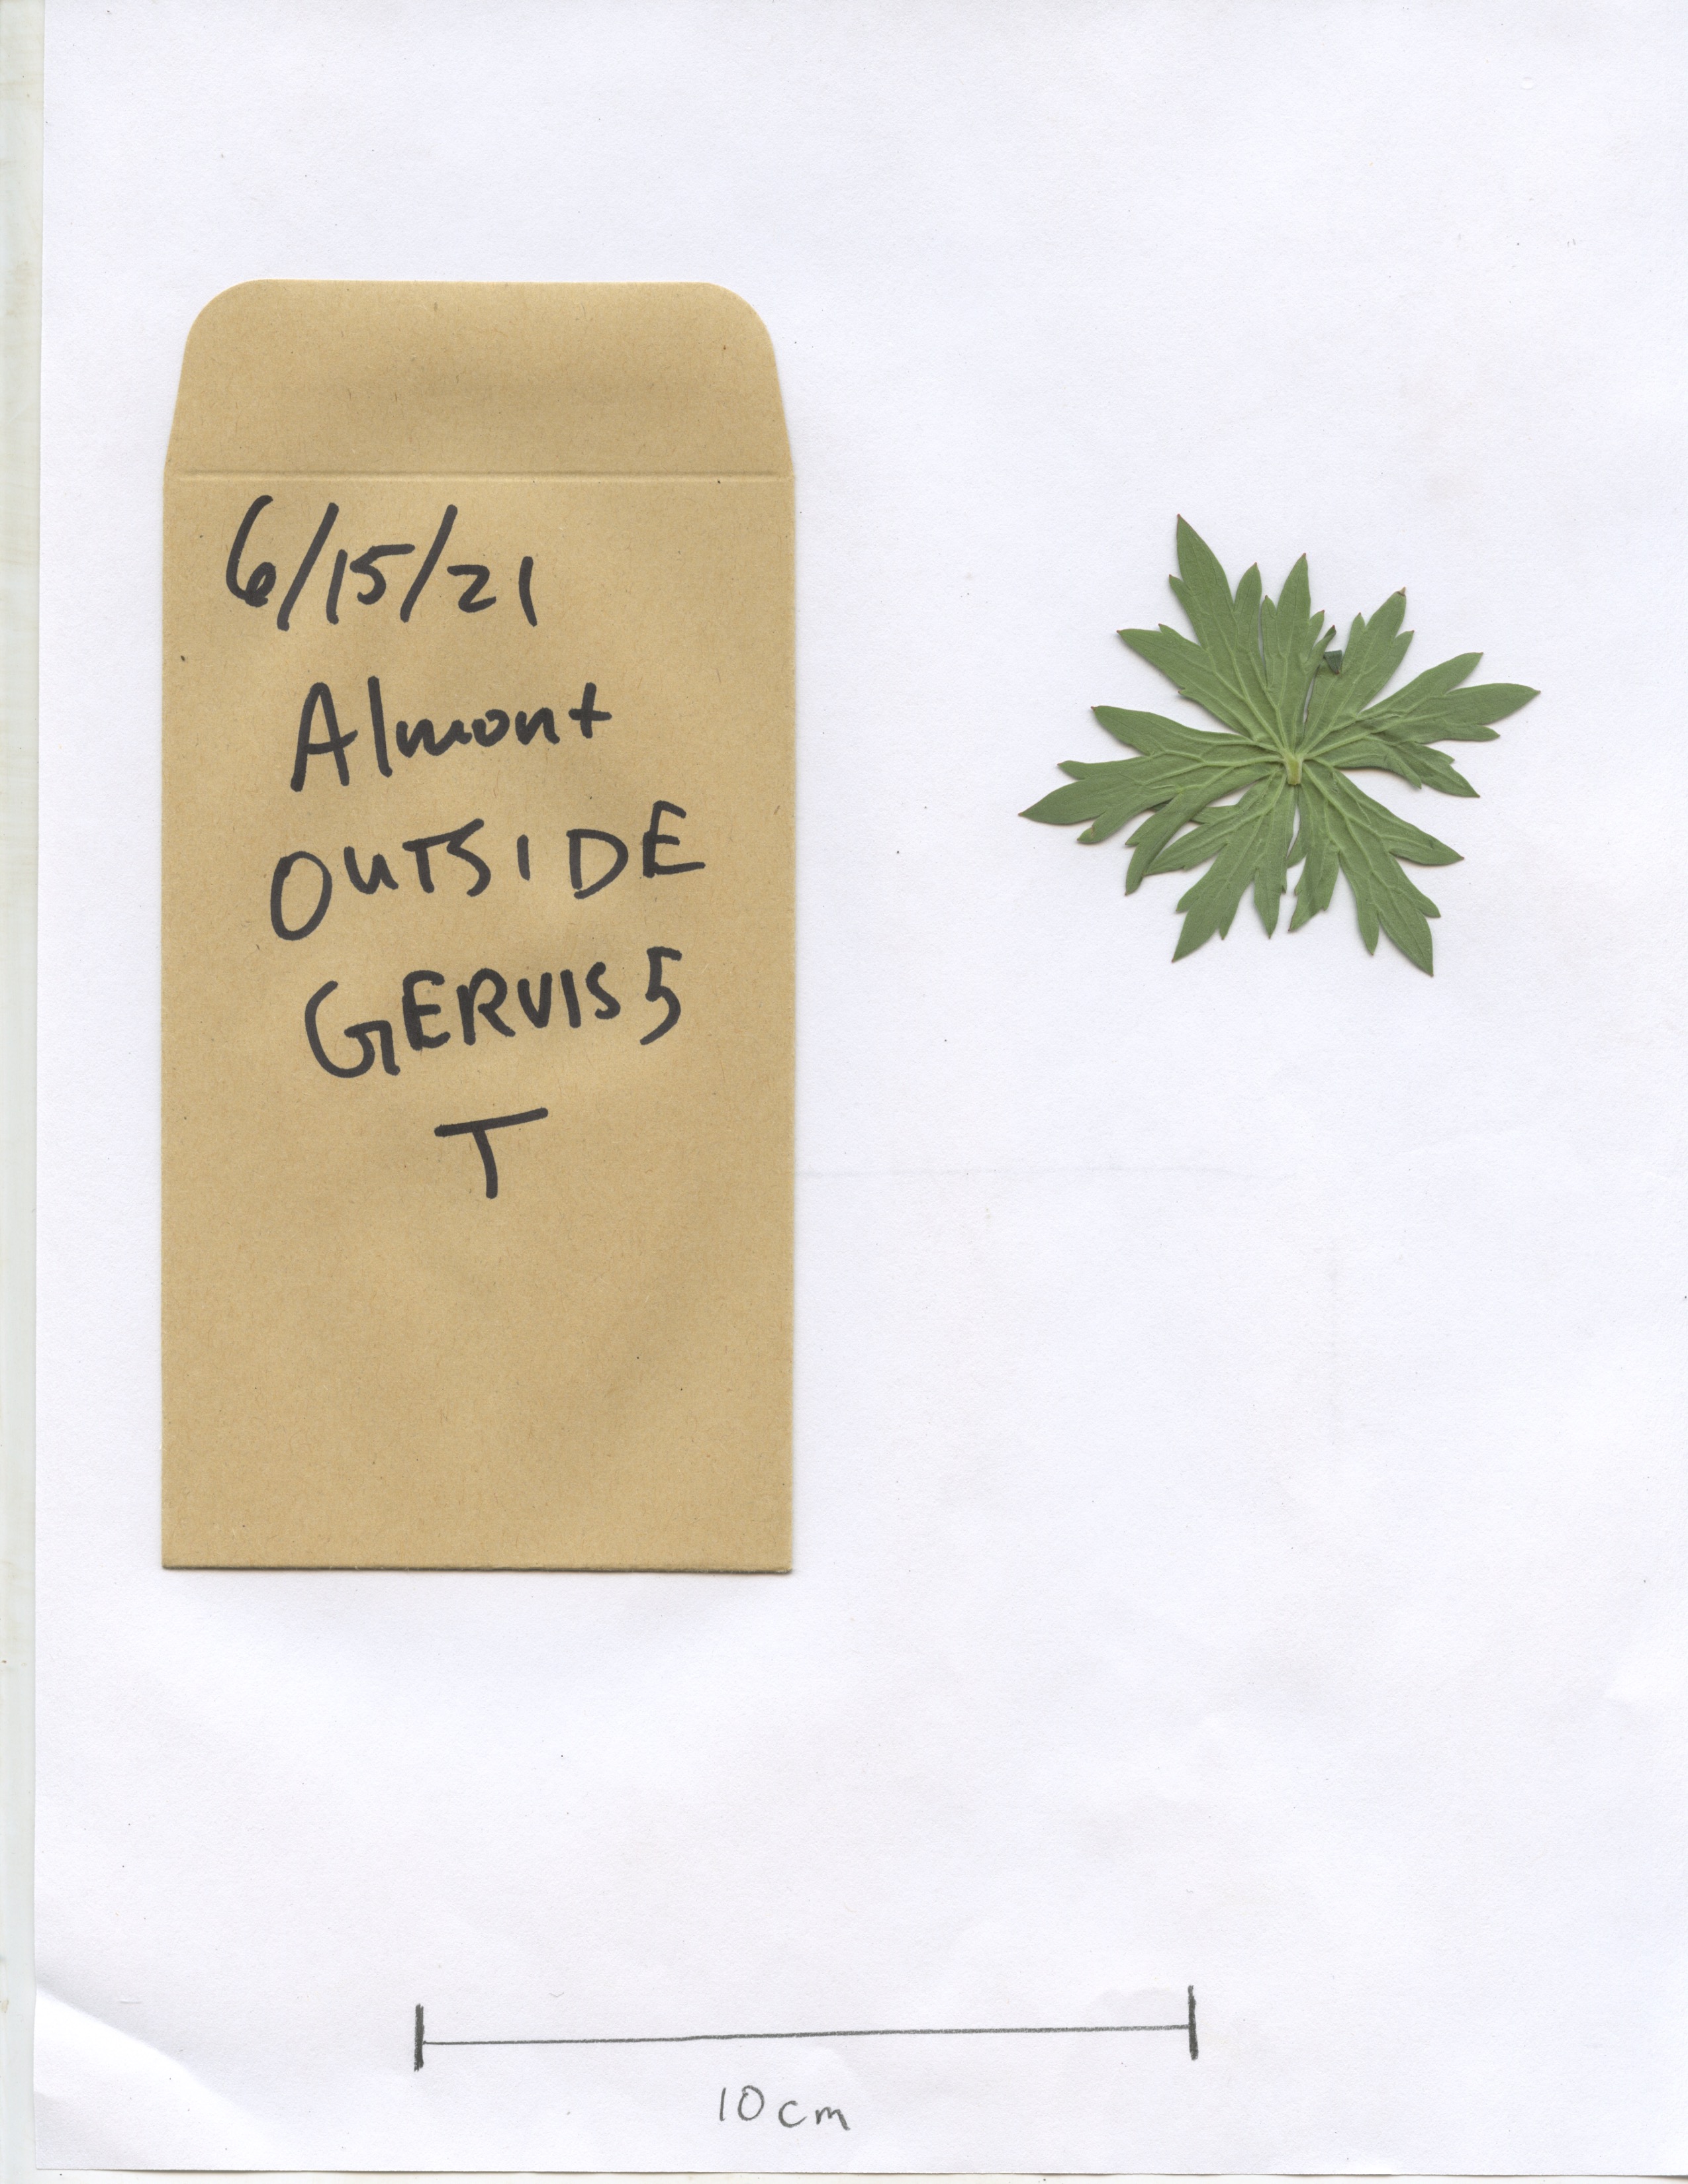 6/15/21
Almont
OUTSIDE
GERVIS5
T
10cm